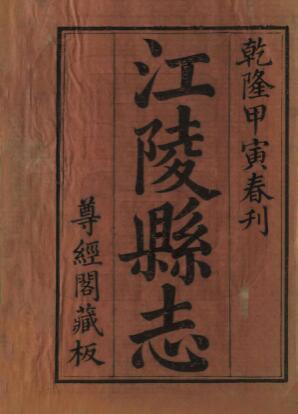 乾隆甲寅春刊
江陵縣志
尊經閣藏板